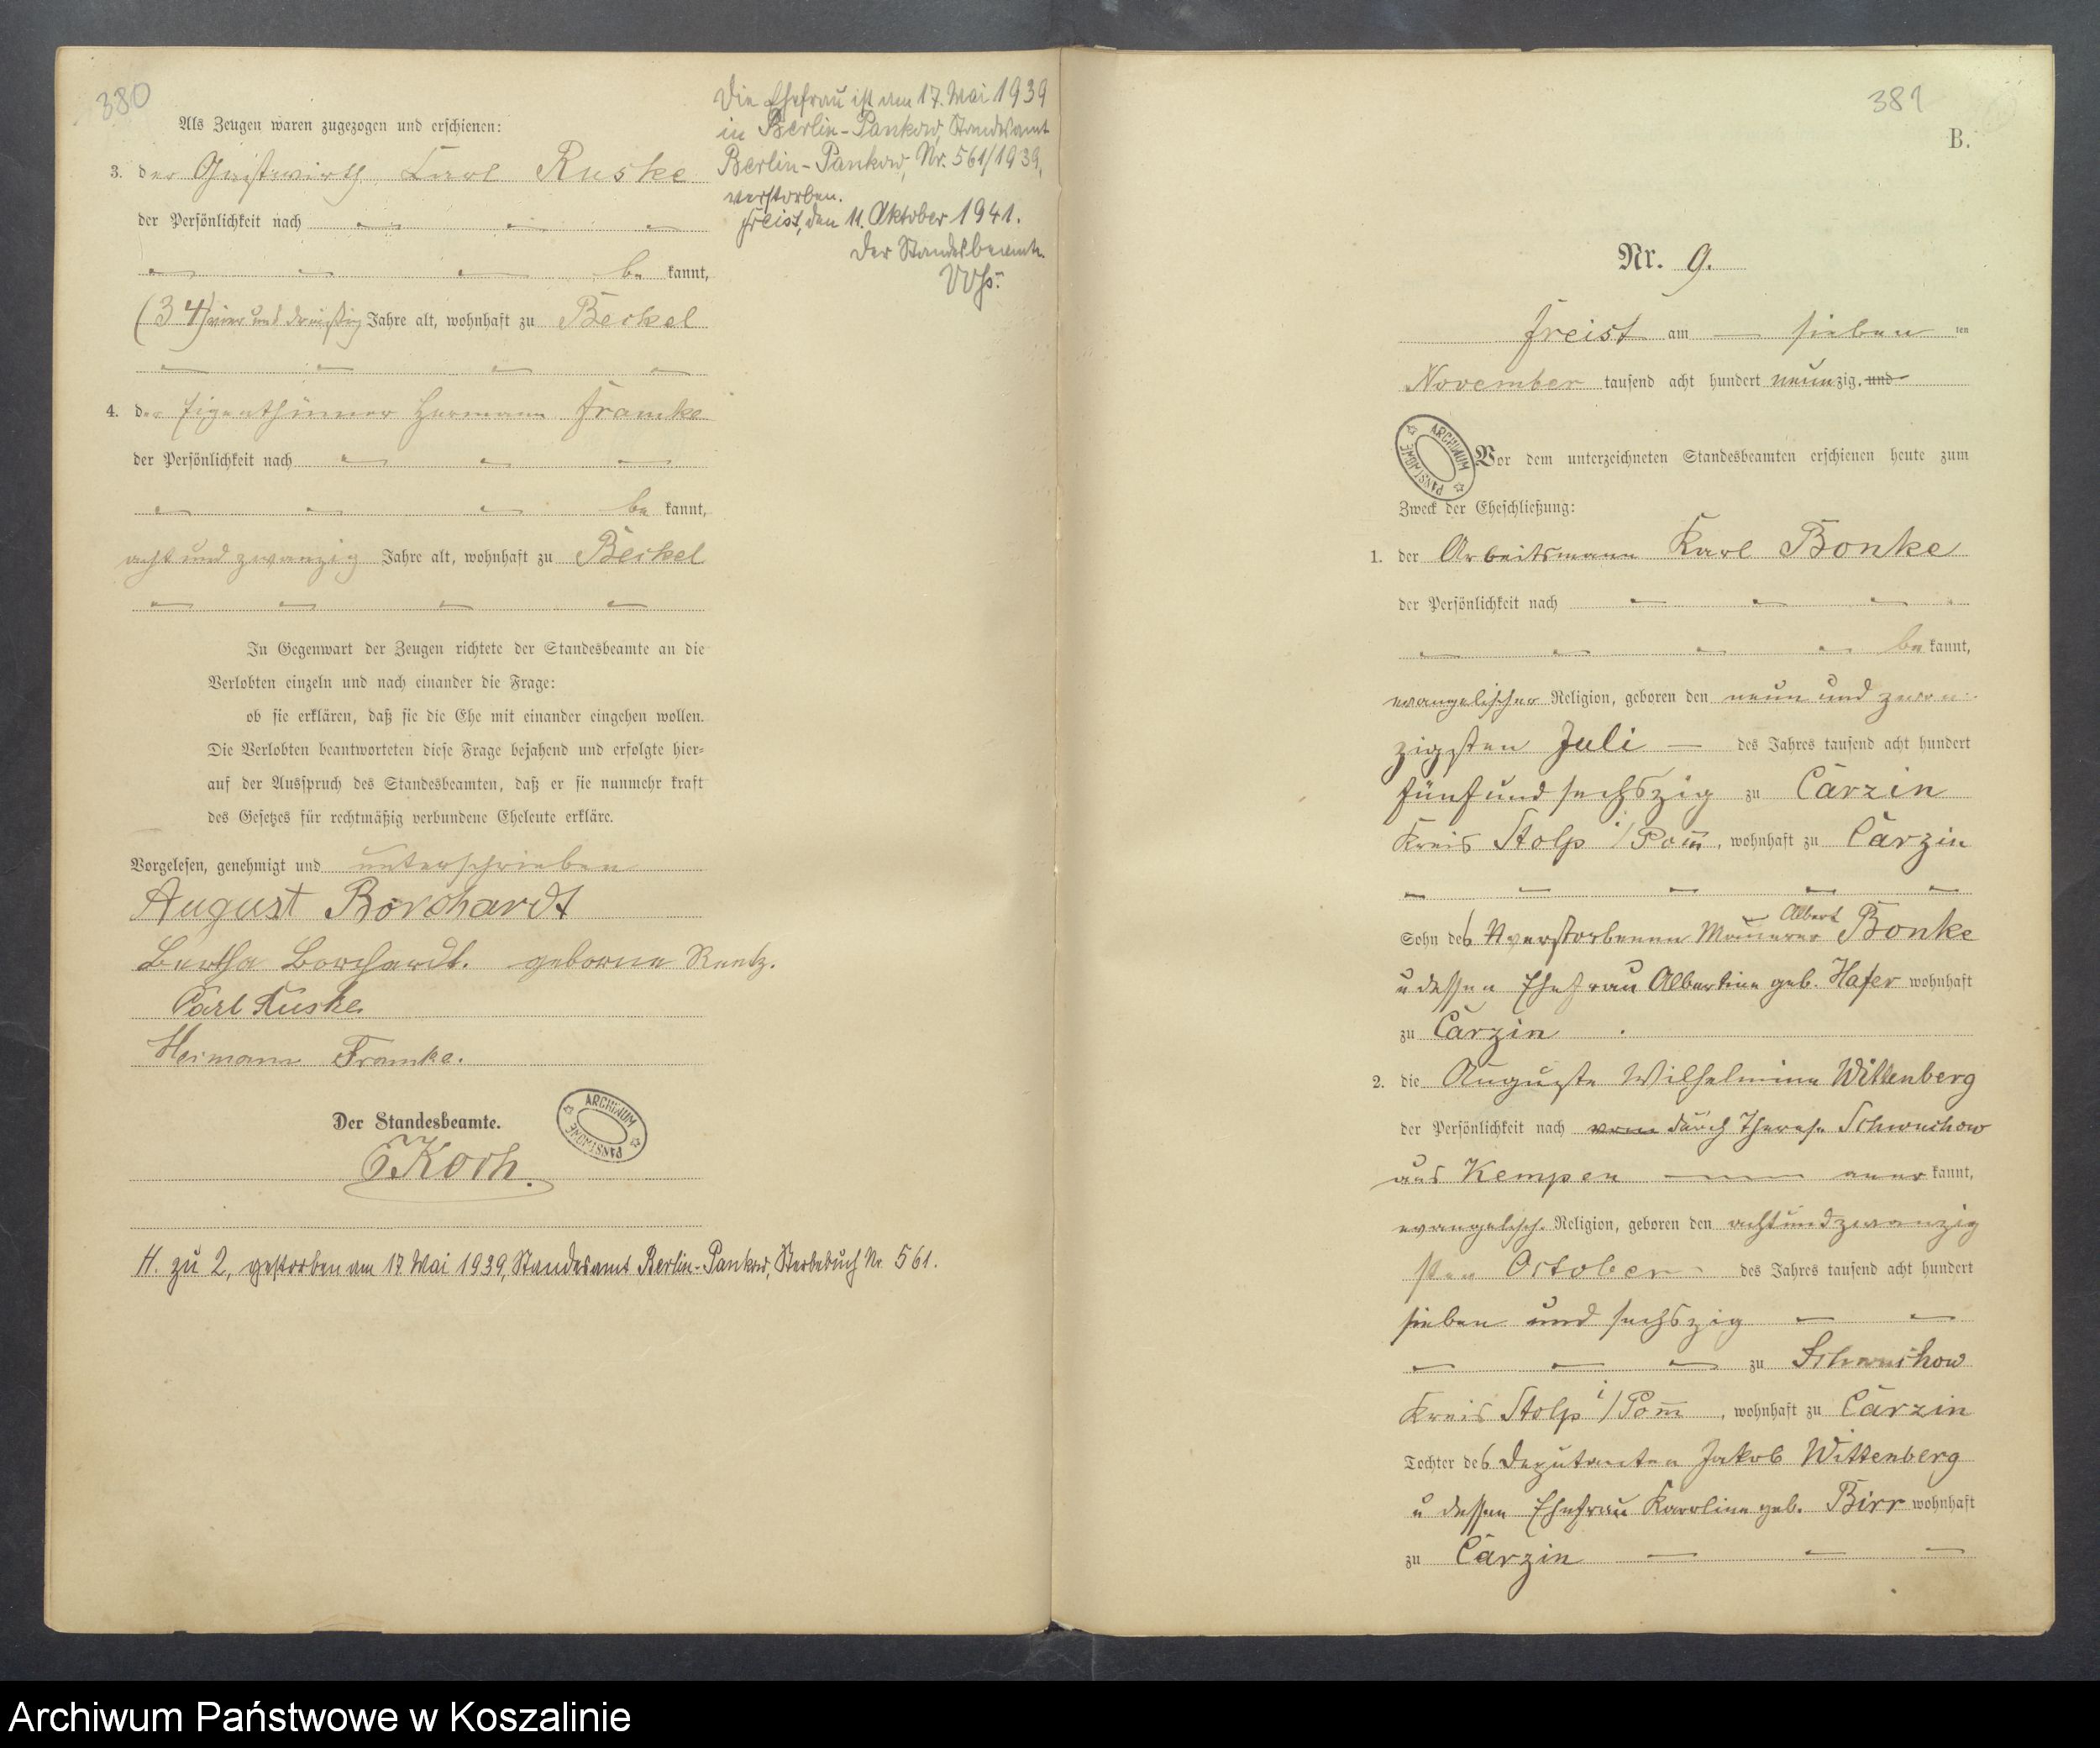 380
Als Zeugen waren zugezogen und erschienen:
3. der Gastwirth Carl Ruske
der Persönlichkeit nach
be kannt,
(34) vier und dreißig Jahre alt, wohnhaft zu Beckel
4. der Eigenthümer Hermann Framke
der Persönlichkeit nach
be kannt,
acht und zwanzig Jahre alt, wohnhaft zu Beckel
In Gegenwart der Zeugen richtete der Standesbeamte an die
Verlobten einzeln und nach einander die Frage:
ob sie erklären, daß sie die Ehe mit einander eingehen wollen.
Die Verlobten beantworteten diese Frage bejahend und erfolgte hier-
auf der Ausspruch des Standesbeamten, daß er sie nunmehr kraft
des Gesetzes für rechtmäßig verbundene Eheleute erkläre.
Vorgelesen, genehmigt und unterschrieben
August Borchardt
Bertha Borchardt. geborne Rentz.
Carl Ruske
Hermann Framke.
Der Standesbeamte.
Koch.
ARCHIWUM PAŃSTWOWE
H. zu 2, gestorben am 17. Mai 1939, Standesamt Berlin-Pankow, Sterbebuch Nr. 561.
Die Ehefrau ist am 17. Mai 1939
in Berlin-Pankow, Standesamt
Berlin-Pankow, Nr. 561/1939,
verstorben.
Freist, den 11. Oktober 1941.
Der Standesbeamte
381
B.
Nr. 9.
Freist am sieben ten
November tausend acht hundert neunzig. und
ARCHIWUM PAŃSTWOWE
Vor dem unterzeichneten Standesbeamten erschienen heute zum
Zweck der Eheschließung:
1. der Arbeitsmann Karl Bonke
der Persönlichkeit nach
be kannt,
evangelischer Religion, geboren den neun und zwan-
zigsten Juli des Jahres tausend acht hundert
fünf und sechszig zu Carzin
Kreis Stolp i/Pom̄, wohnhaft zu Carzin
Sohn des verstorbenen Maurer Albert Bonke
u dessen Ehefrau Albertine geb. Hafer wohnhaft
zu Carzin
2. die Auguste Wilhelmine Wittenberg
der Persönlichkeit nach durch Therese Schwuchow
aus Kempen aner kannt,
evangelisch. Religion, geboren den acht und zwanzig
sten October des Jahres tausend acht hundert
sieben und sechszig
zu Schwuchow
Kreis Stolp i/Pom̄, wohnhaft zu Carzin
Tochter des Deputanten Jakob Wittenberg
u dessen Ehefrau Karoline geb. Birr wohnhaft
zu Carzin
Archiwum Państwowe w Koszalinie